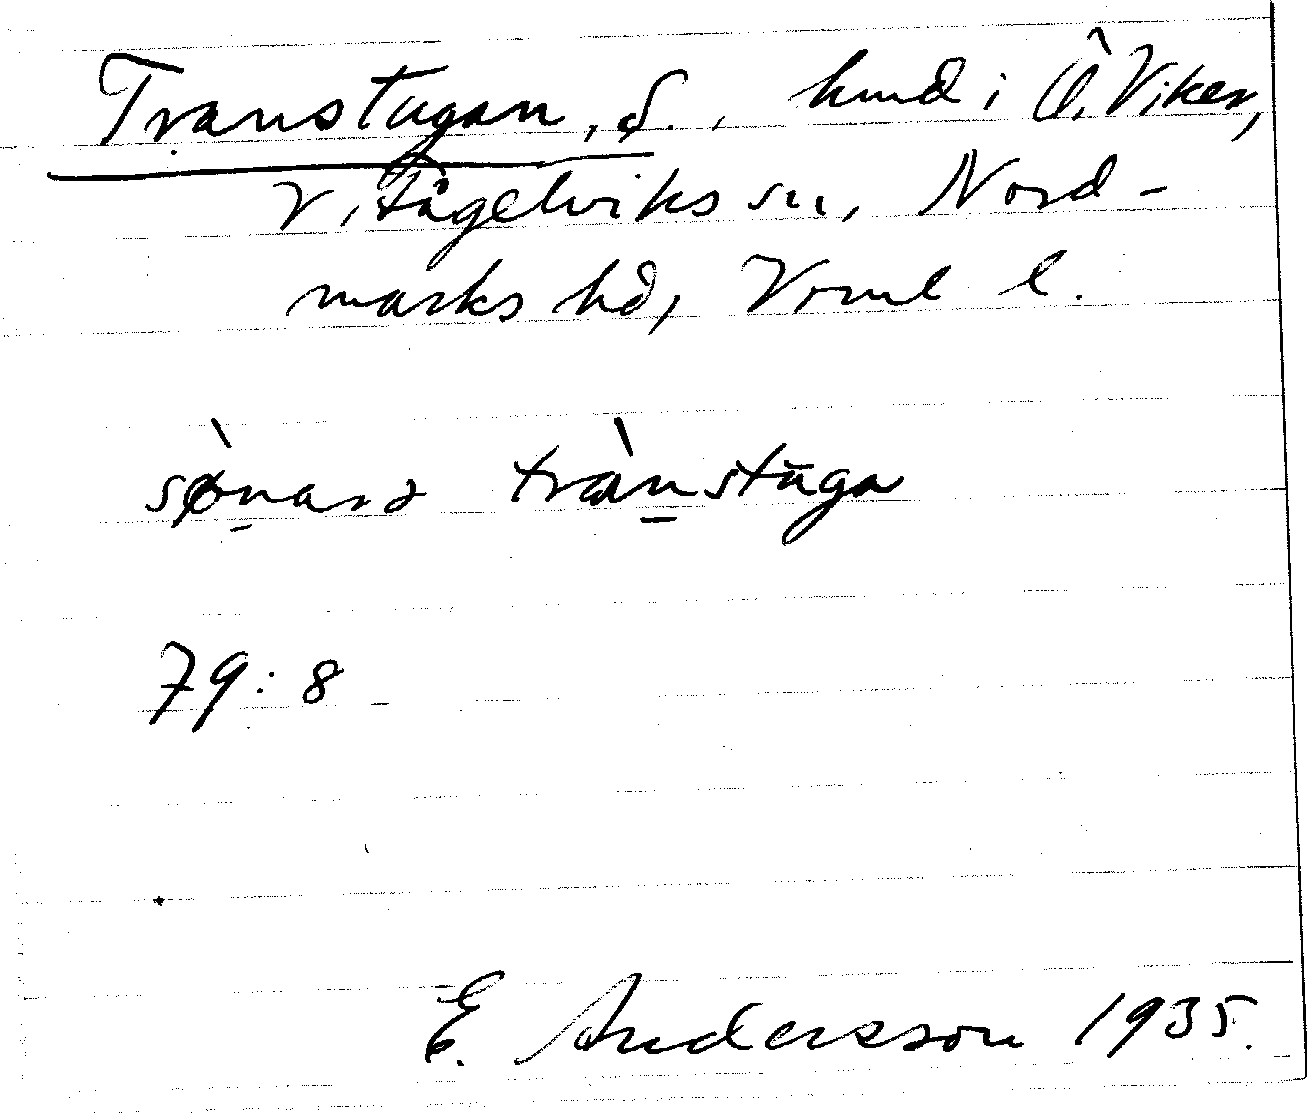 Transtugan, S., hmd i Ö. Viker,
V. Fågelviks sn, Nord-
marks hd, Vrml l.
sø̀narə trànstūga
79:8
E. Andersson 1935.